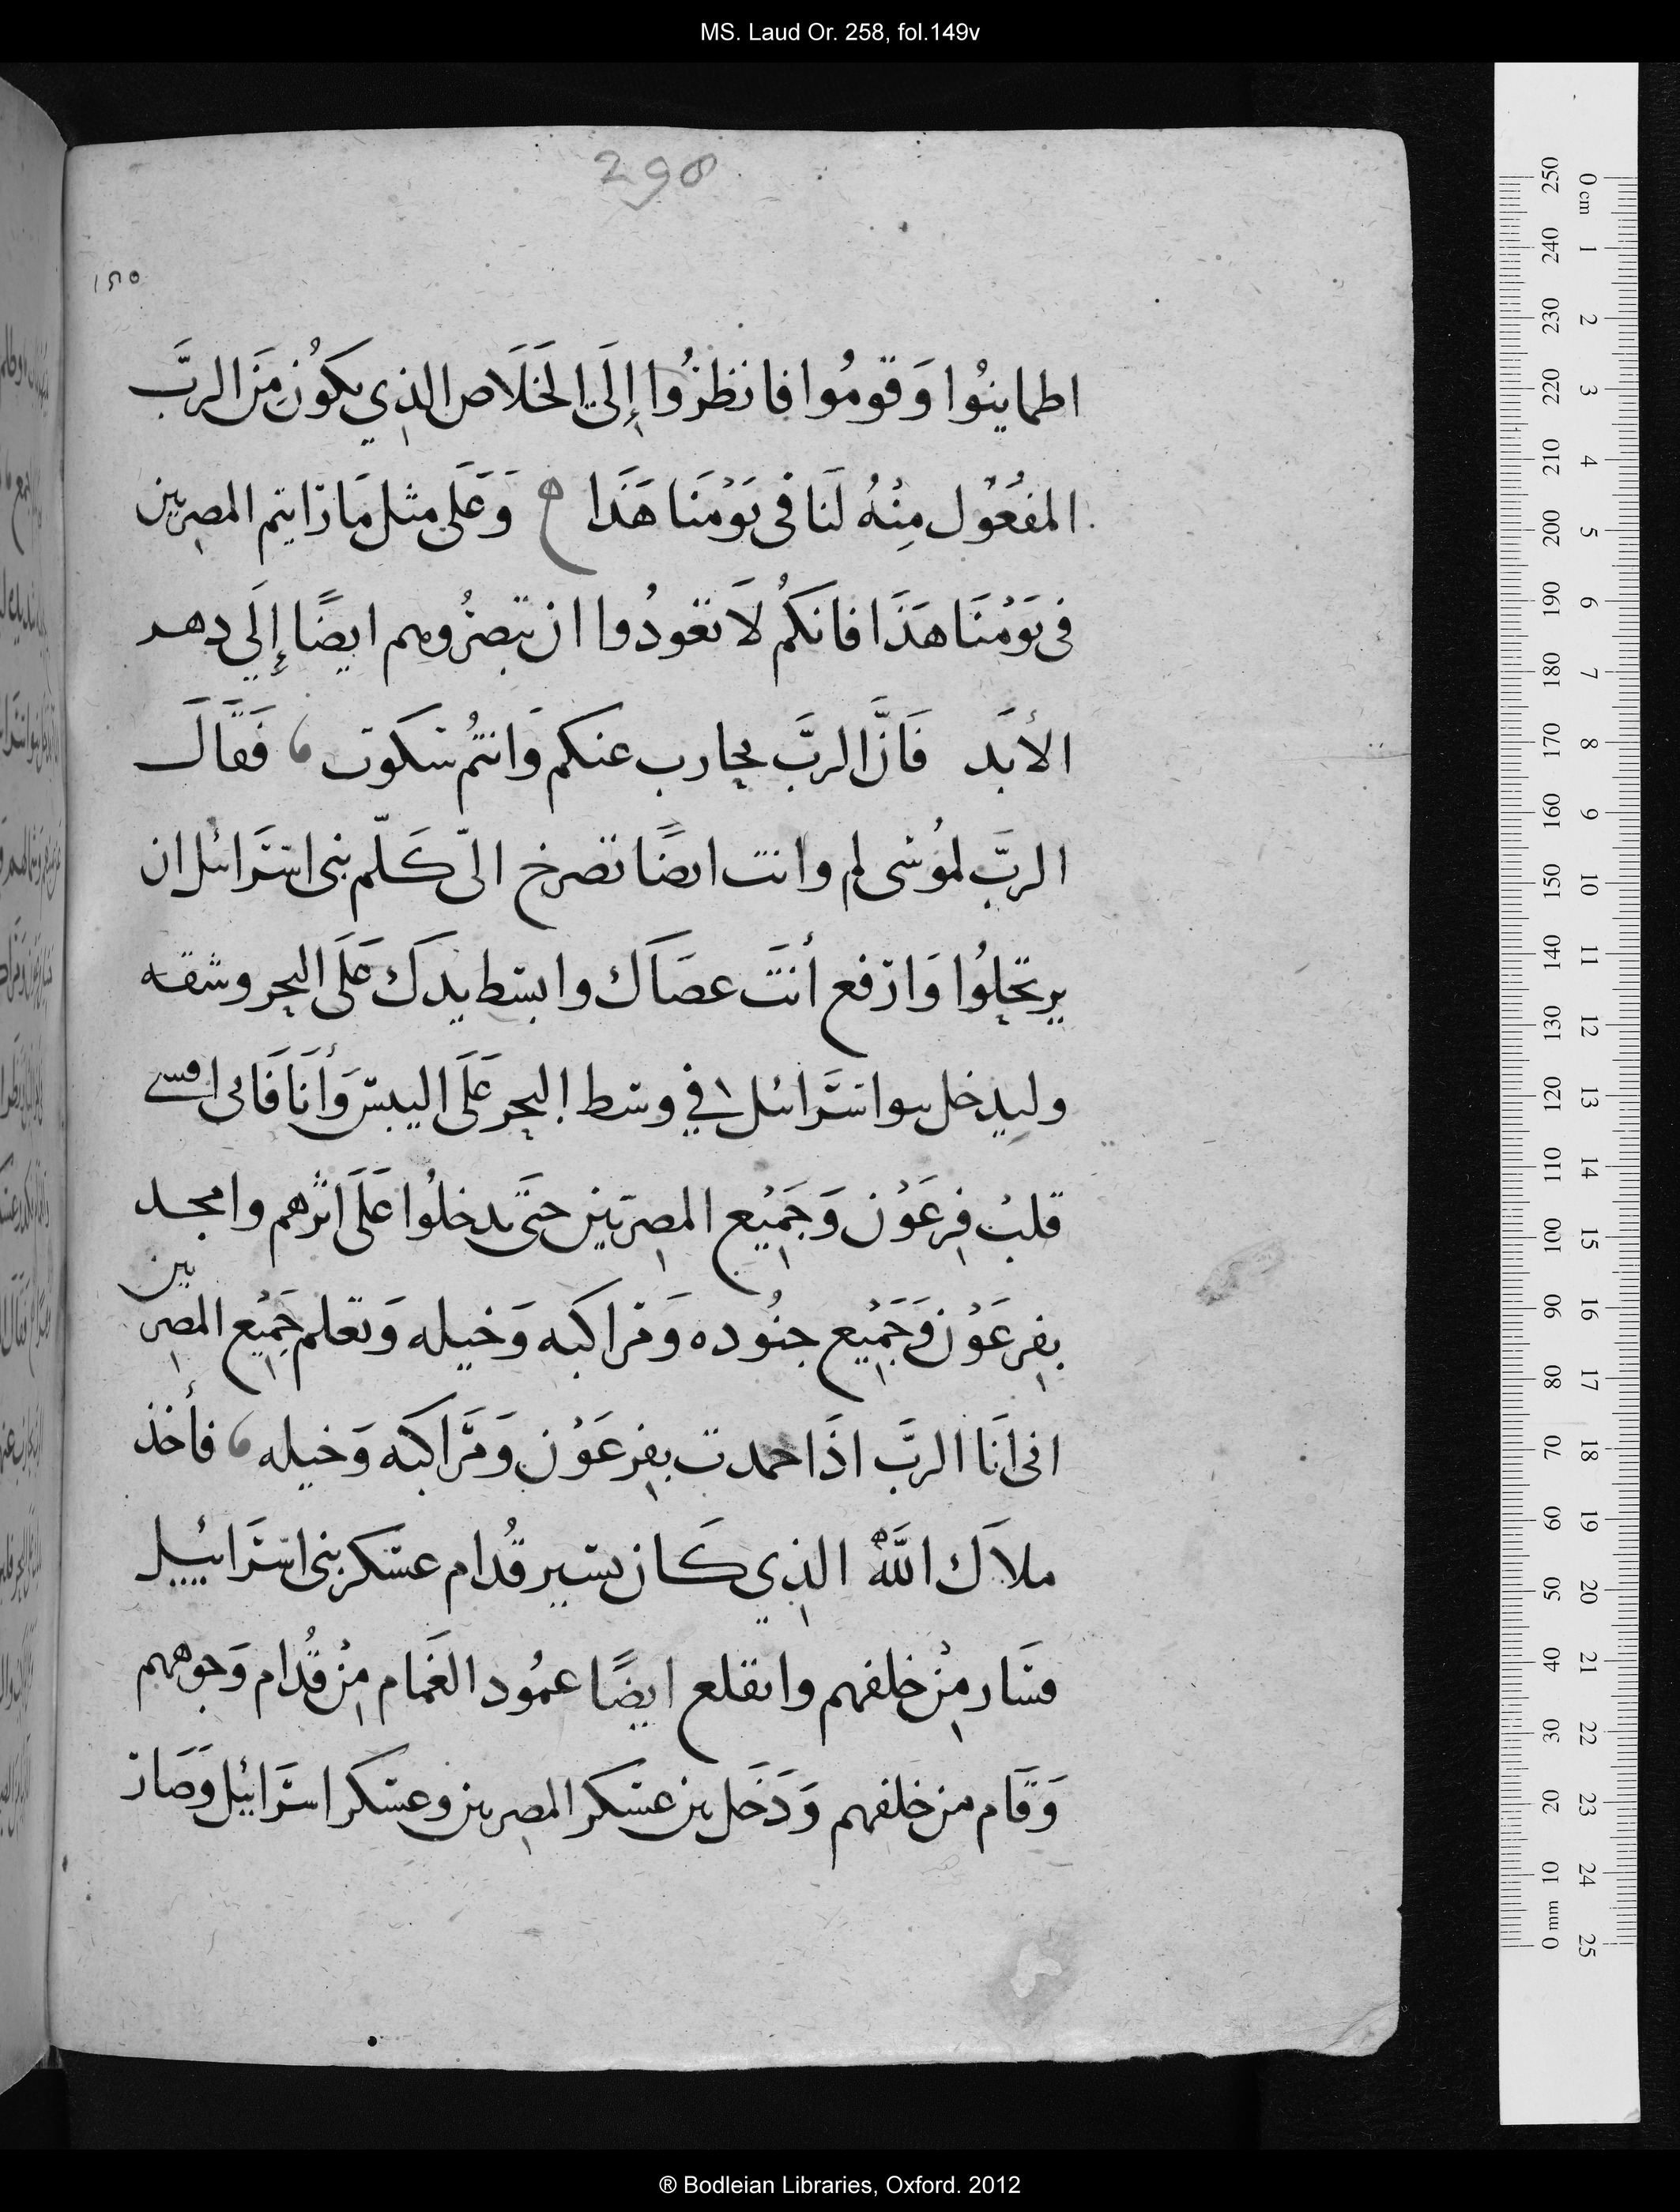 MS. Laud Or. 258, fol.149v
298
١٥٠
اطماينُوا وَقومُوا فانظرُوا إِلَي الخَلَاص الذِي يكوُن مِنَ الربَّ
المفُعُول مِنْهُ لَنا فى يَوْمنَا هَذَا وَعَلَى مثل مَا رَايتم المصرِيين
فى يَوْمْنَا هَذَا فانكُم لَا تعُودُوا ان تبصرُوهم ايضًا إِلَي دهر
الأبَد فَانَّ الربَّ يحارب عنكم وَانتُم سكوت فَقَالَ
الربّ لموُسى لم وانت ايضًا تصرخ الىّ كَلّم بنى اسَرائل ان
يرتحلوُا وَارفع أنتَ عصَاك وابسط يدكَ عَلَى البحر وشقه
وليدخل بنوا اسَرائل فى وسط البحر عَلَى اليبس وَأنَا فَانى اقسى
قلبُ فِرعَوْن وَجَميْع المصرِيين حتىَ يدخلُوا عَلَى اثرهم وامجد
بفِرعَوْن وَجَميْع جنُوده وَمراكبه وَخيله وَتعلم جَميْع المصرِيين
انى انَا الربَّ اذَا حمدت بفِرعَوْن وَمَراكبه وَخيله فأخذ
ملاَك اللَّهُ الذِي كَان يسير قُدام عسكر بنى اسرَاييل
فسَار مِنْ خلفهم وانقلع ايضًا عمُود الغَمام مِنْ قُدام وَجوههم
وَقَام من خلفهم وَدَخَل بين عسَكر المصرِيين وعسَكر اسرَائيل وَصَار
250 240 230 220 210 200 190 180 170 160 150 140 130 120 110 100 90 80 70 60 50 40 30 20 10 0 mm
0 cm 1 2 3 4 5 6 7 8 9 10 11 12 13 14 15 16 17 18 19 20 21 22 23 24 25
® Bodleian Libraries, Oxford. 2012